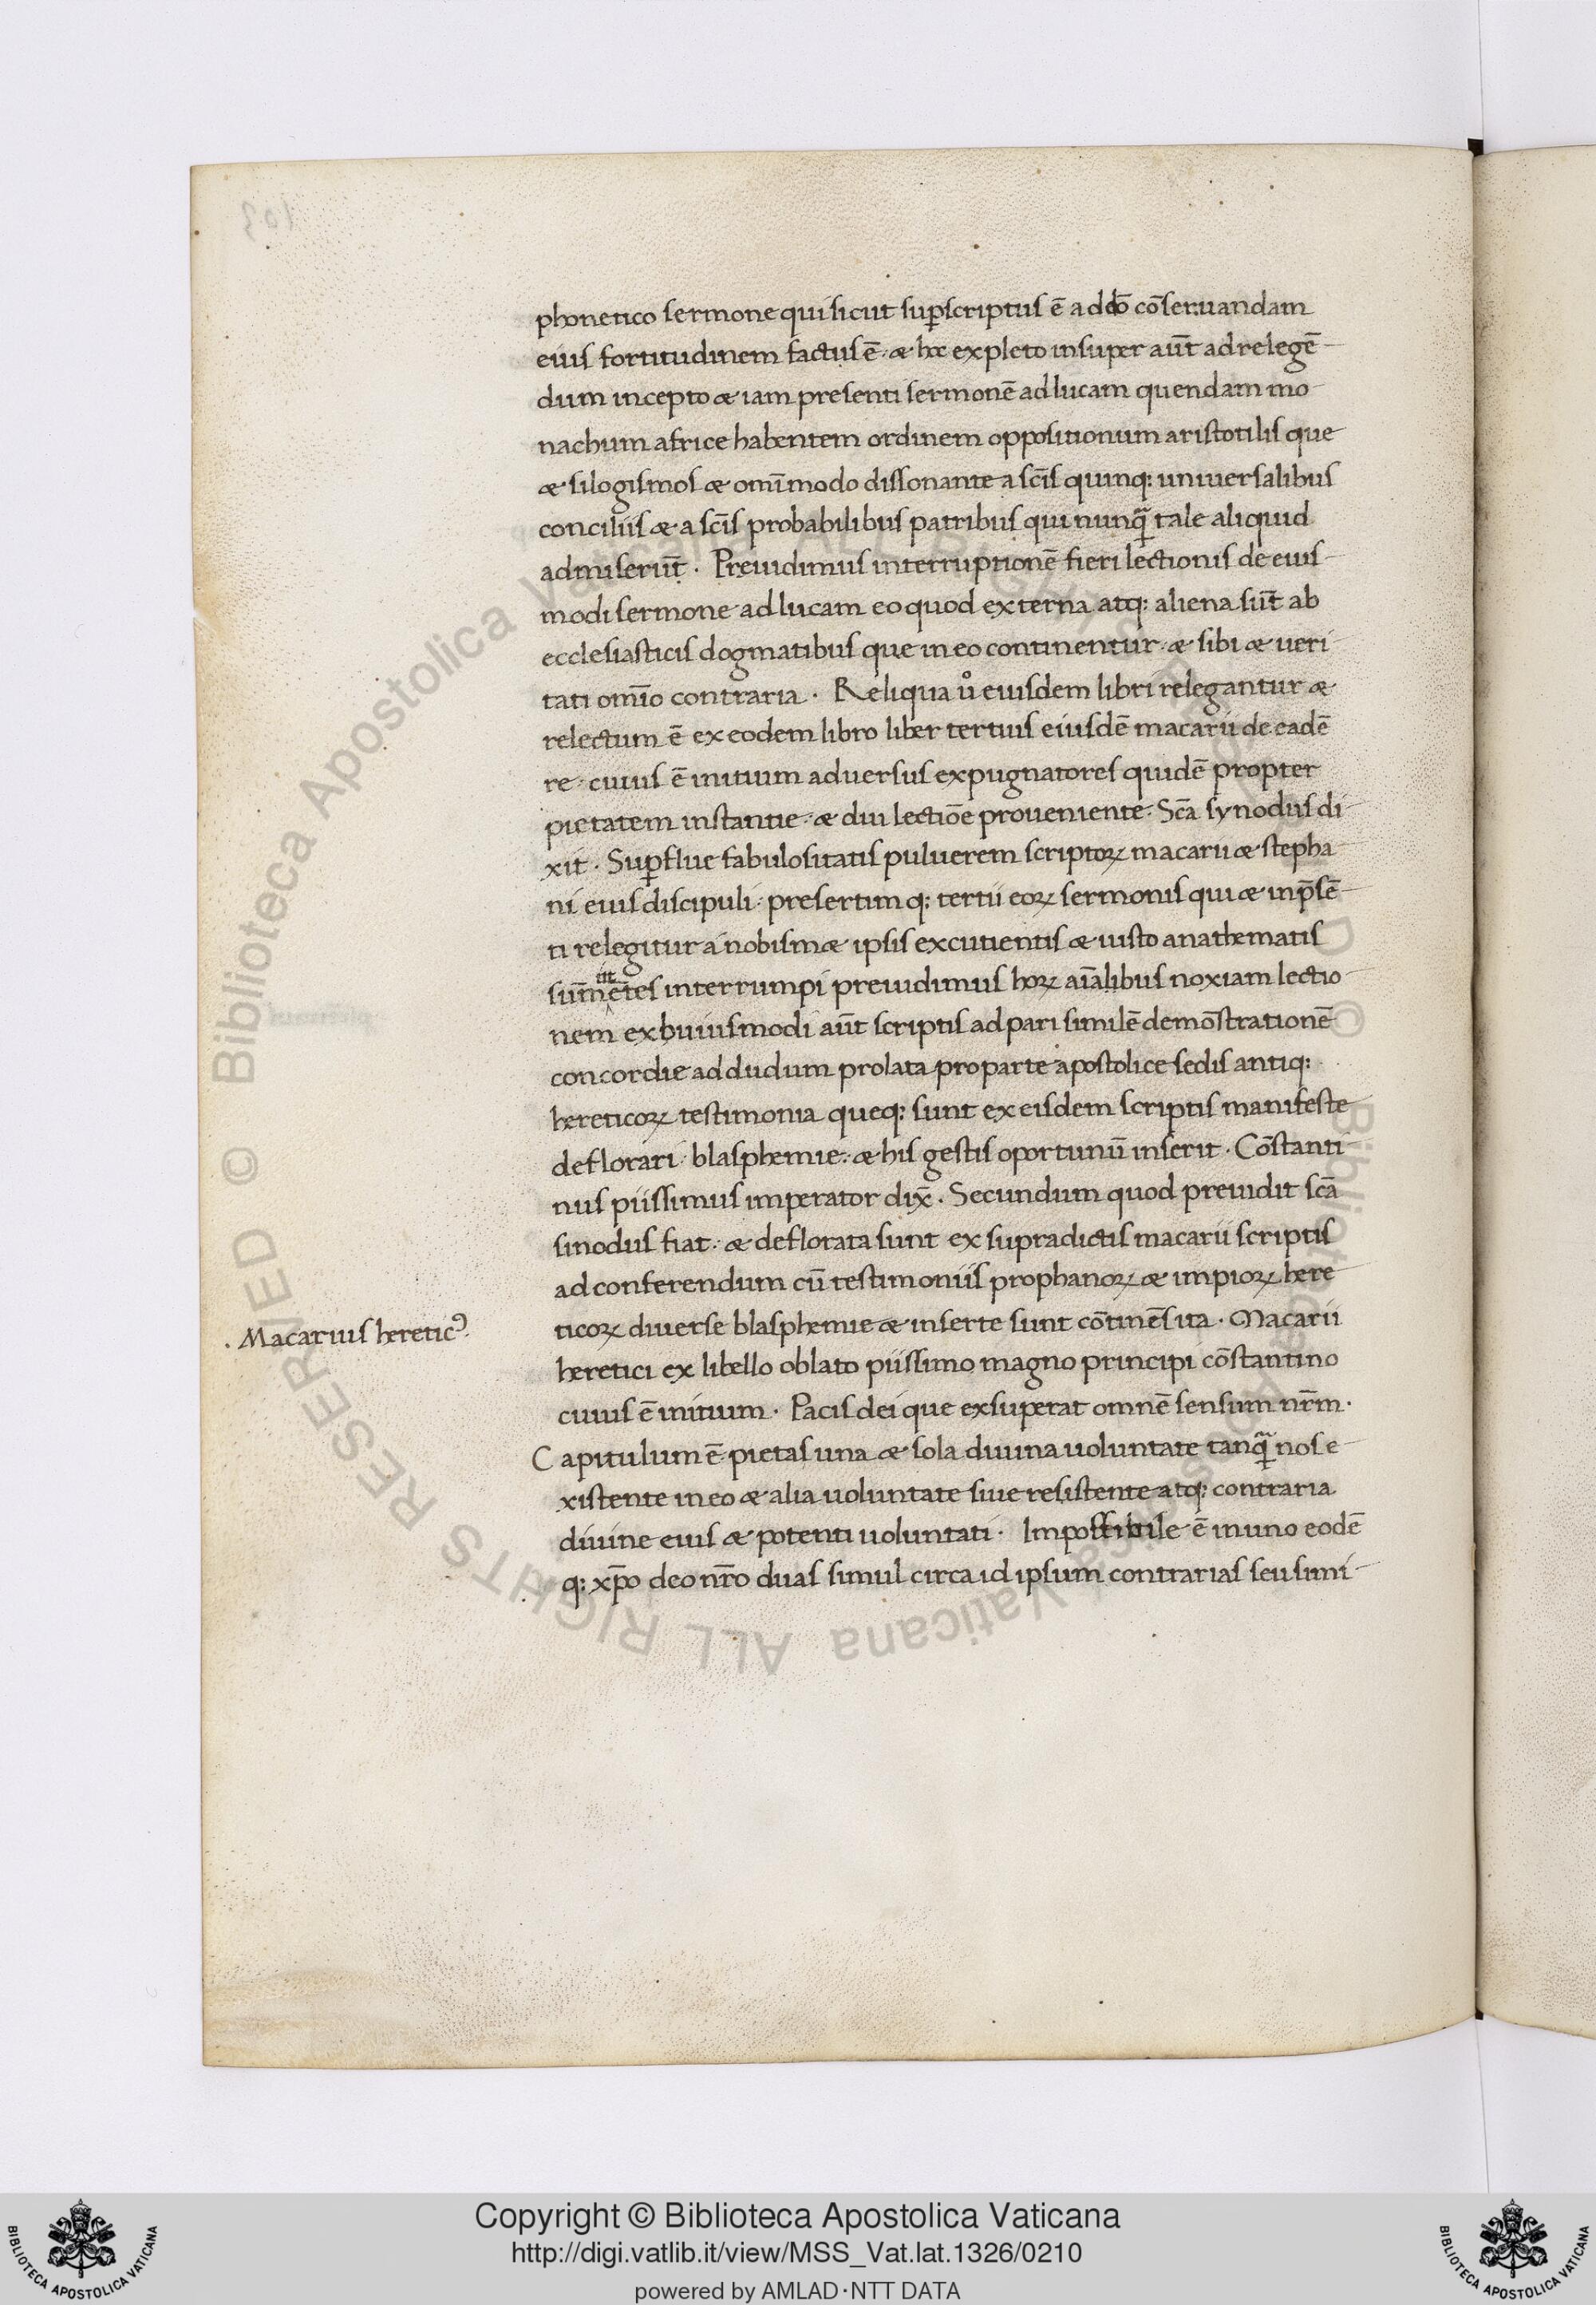 phonetico sermone qui sicut suꝑscriptus ē a ddō cōseruandam
eius fortitudinem factus ē · & hoc expleto insuper aūt ad relegē-
dum incepto & iam presenti sermonē ad lucam quendam mo-
nachum africe habentem ordinem oppositionum aristotilis que
& silogismos & om̄imodo dissonante a sc̄is quinq; uniuersalibus
conciliis & a sc̄is probabilibus patribus qui nunꝙ̄ tale aliquid
admiserūt · Preuidimus interruptionē fieri lectionis de eius-
modi sermone ad lucam eo quod externa atq; aliena sūt ab
ecclesiasticis dogmatibus que in eo continentur · & sibi & ueri
tati om̄io contraria · Reliqua u̇ eiusdem libri relegantur &
relectum ē ex eodem libro liber tertius eiusdē macarii de eadē
re · cuius ē initium aduersus expugnatores quidē propter
pietatem instantie · & diu lectiōe proueniente · Sc̄a synodus di-
xit · Suꝑflue fabulositatis puluerem scriptoꝝ macarii & stepha-
ni eius discipuli · presertim q; tertii eoꝝ sermonis qui & in p̄sē-
ti relegitur a nobism& ipsis excutientis & iusto anathematis
int
sūmētes interrumpi preuidimus hoꝝ aīalibus noxiam lectio-
nem ex huiusmodi aūt scriptis ad pari similē demōstrationē
concordie ad dudum prolata pro parte apostolice sedis antiq;
hereticoꝝ testimonia queq; sunt ex eisdem scriptis manifeste
deflorari · blasphemie · & his gestis oportunū inserit · Cōstanti-
nus piissimus imperator dix̄ · Secundum quod preuidit sc̄a
sinodus fiat · & deflorata sunt ex supradictis macarii scriptis
ad conferendum cū testimoniis prophanoꝝ & impioꝝ here-
ticoꝝ diuerse blasphemie & inserte sunt cōtinēs ita · Macarii
· Macarius hereticꝰ ·
heretici ex libello oblato piissimo magno principi cōstantino
cuius ē initium · Pacis dei que exsuperat omnē sensum nr̄m ·
Capitulum ē pietas una & sola diuina uoluntate tanꝙ̄ nos e-
xistente in eo & alia uoluntate siue resistente atq; contraria
diuine eius & potenti uoluntati · Impossibile ē in uno eodē
q; xp̄o deo nr̄o duas simul circa id ipsum contrarias seu simi-
Copyright © Biblioteca Apostolica Vaticana
http://digi.vatlib.it/view/MSS_Vat.lat.1326/0210
powered by AMLAD·NTT DATA
BIBLIOTECA APOSTOLICA VATICANA
BIBLIOTECA APOSTOLICA VATICANA